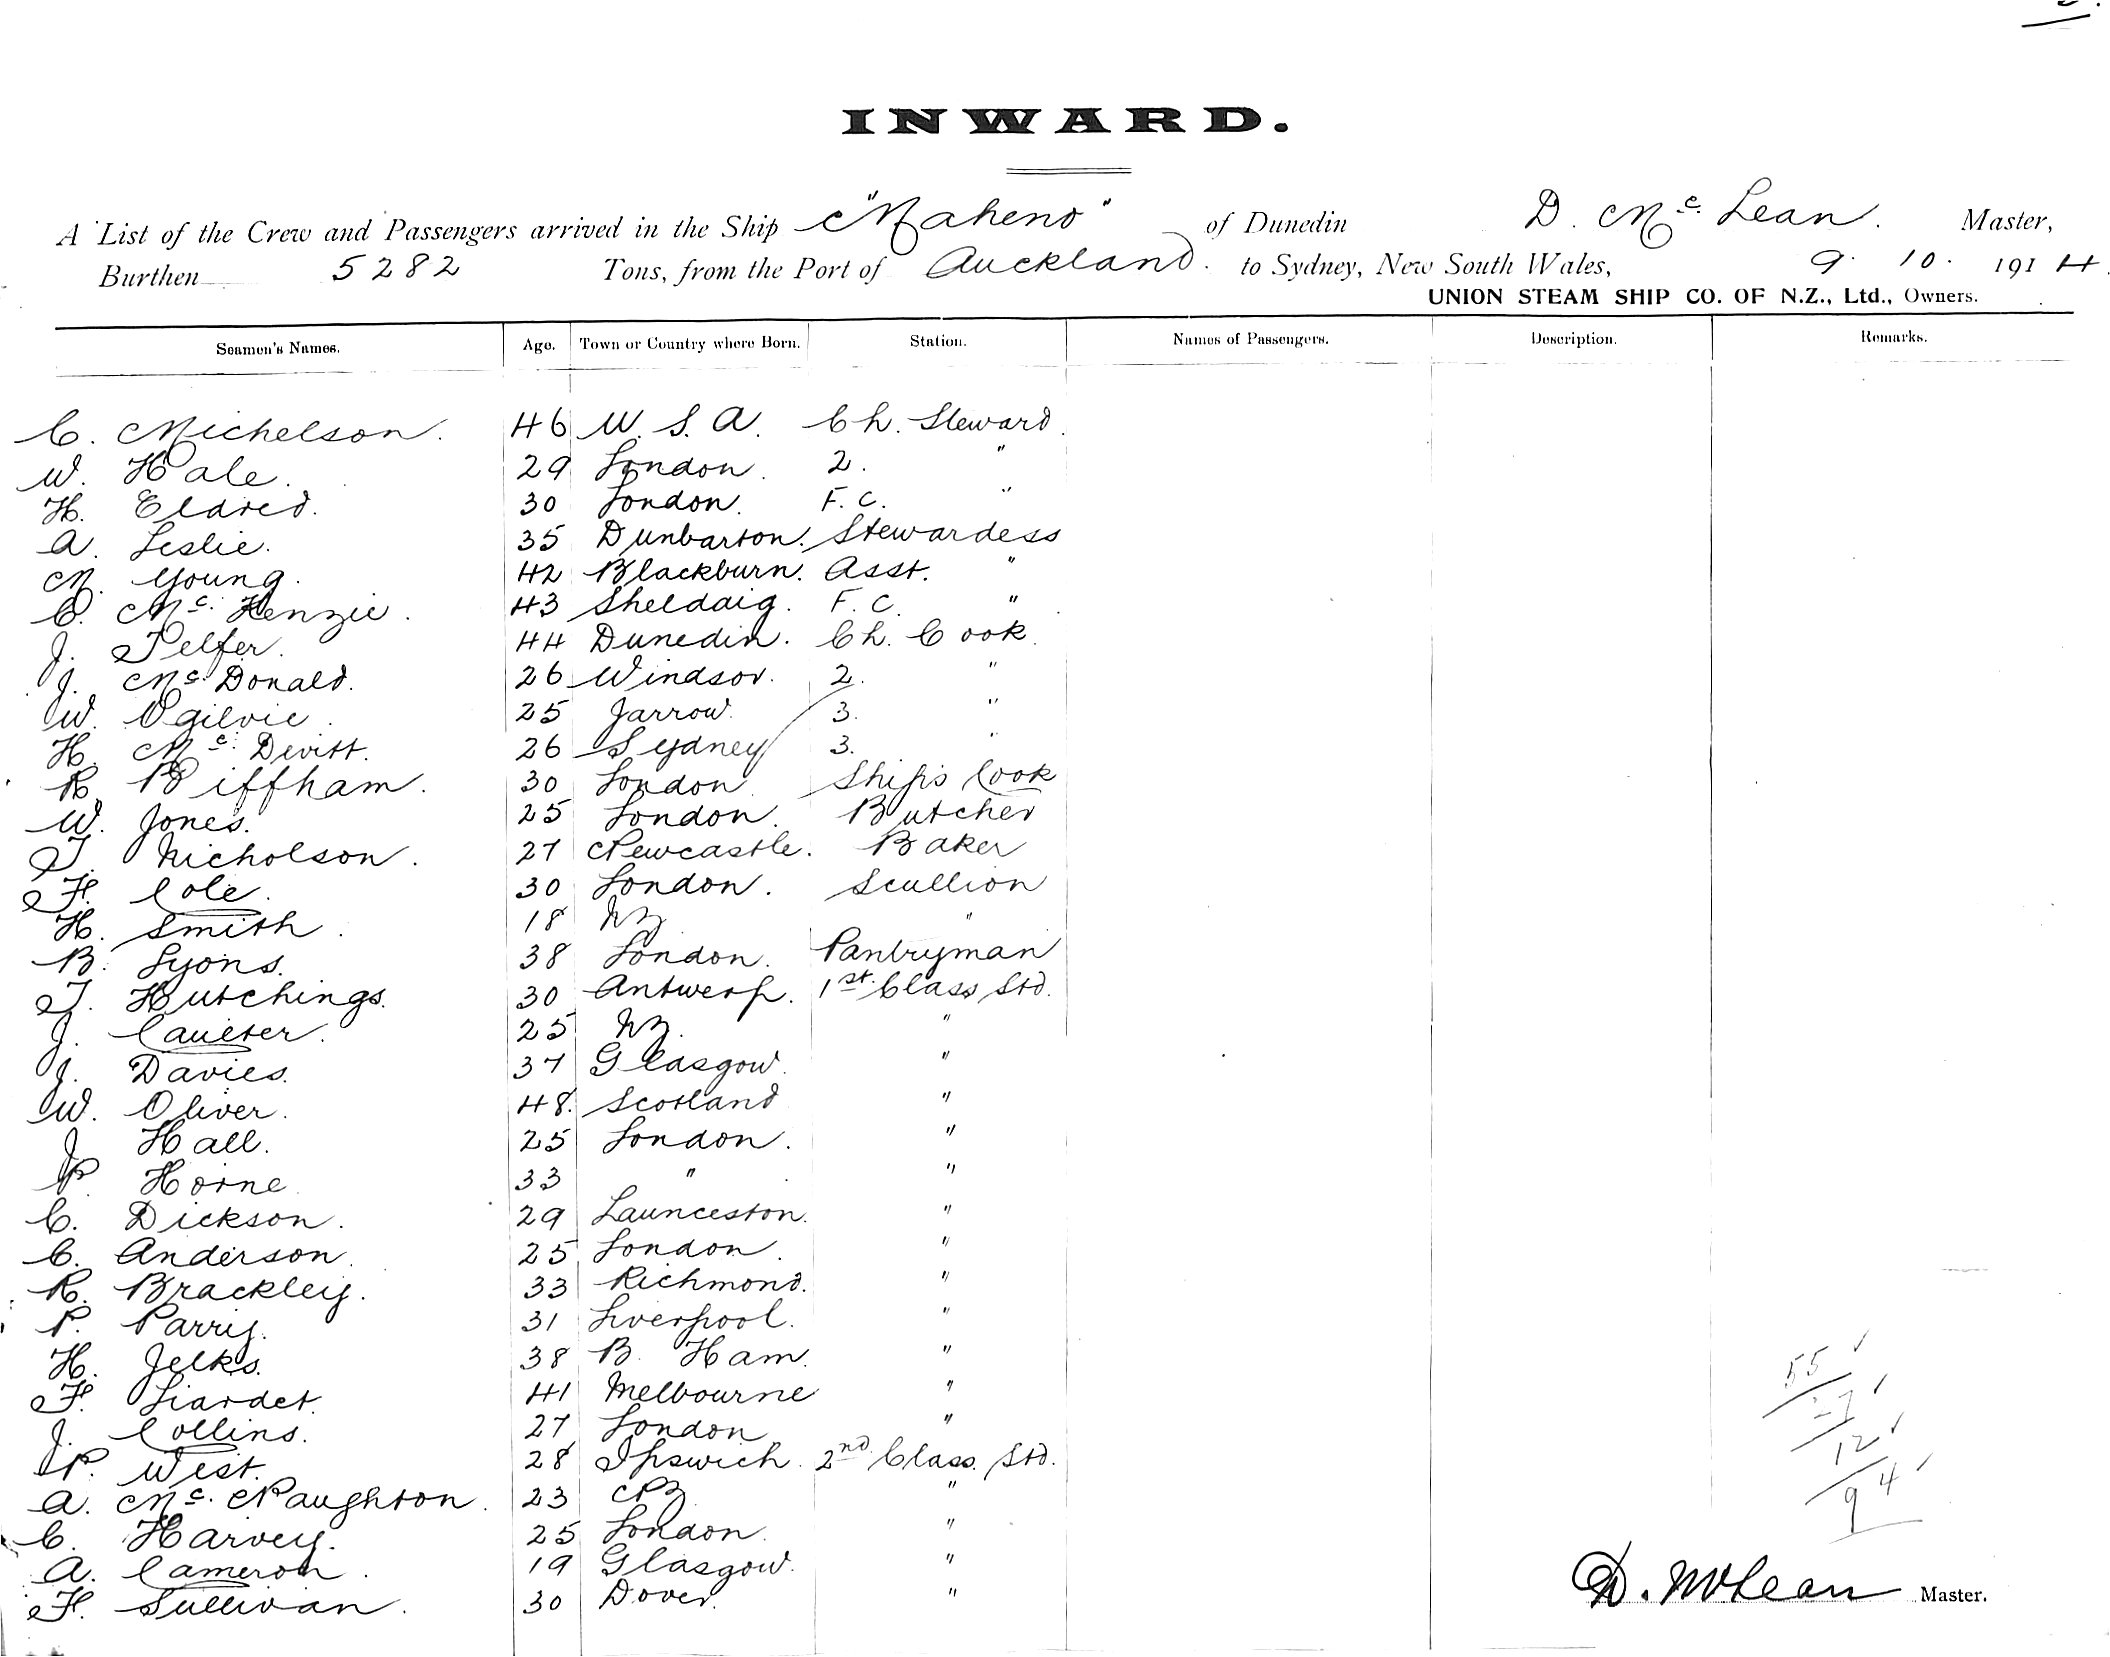 INWARD.
A List of the Crew and Passengers arrived in the Ship "Maheno" of Dunedin D. Mc. Lean. Master,
Burthen 5282 Tons, from the Port of Auckland. to Sydney, New South Wales, 9. 10. 1914
UNION STEAM SHIP CO. OF N.Z., Ltd., Owners.
Seamen's Names. Age. Town or Country where Born. Station. Names of Passengers. Description. Remarks.
C. Michelson. 46 U. S. A. Ch. Steward.
W. Hale. 29 London. 2. "
H. Eldred. 30 London. F. C. "
A. Leslie. 35 Dunbarton. Stewardess
M. Young. 42 Blackburn. Asst. "
C. Mc. Kenzie. 43 Sheldaig. F. C. "
J. Telfer. 44 Dunedin. Ch. Cook.
J. Mc. Donald. 26 Windsor. 2. "
W. Ogilvie. 25 Jarrow. 3. "
H. Mc. Devitt. 26 Sydney 3. "
R. Biffham. 30 London. Ship's Cook
W. Jones. 25 London. Butcher
T. Nicholson. 27 Newcastle. Baker
F. Cole. 30 London. Scullion
H. Smith. 18 NZ "
B. Lyons. 38 London. Pantryman
T. Hutchings. 30 Antwerp. 1st. Class Std.
J. 25 NZ. "
J. Davies. 37 Glasgow. "
W. Oliver. 48. Scotland "
J. Hall. 25 London. "
P. Horne 33 " "
C. Dickson. 29 Launceston. "
C. Anderson. 25 London. "
R. Brackley. 33 Richmond. "
P. Parry. 31 Liverpool. "
H. Jelks. 38 B. Ham. "
F. Liardet. 41 Melbourne "
J. Collins. 27 London "
P. West. 28 Ipswich. 2nd Class. Std.
A. Mc. Naughton. 23 NZ "
C. Harvey. 25 London. "
A. Cameron. 19 Glasgow. "
F. Sullivan. 30 Dover. "
55
12
94
D. McLean Master.